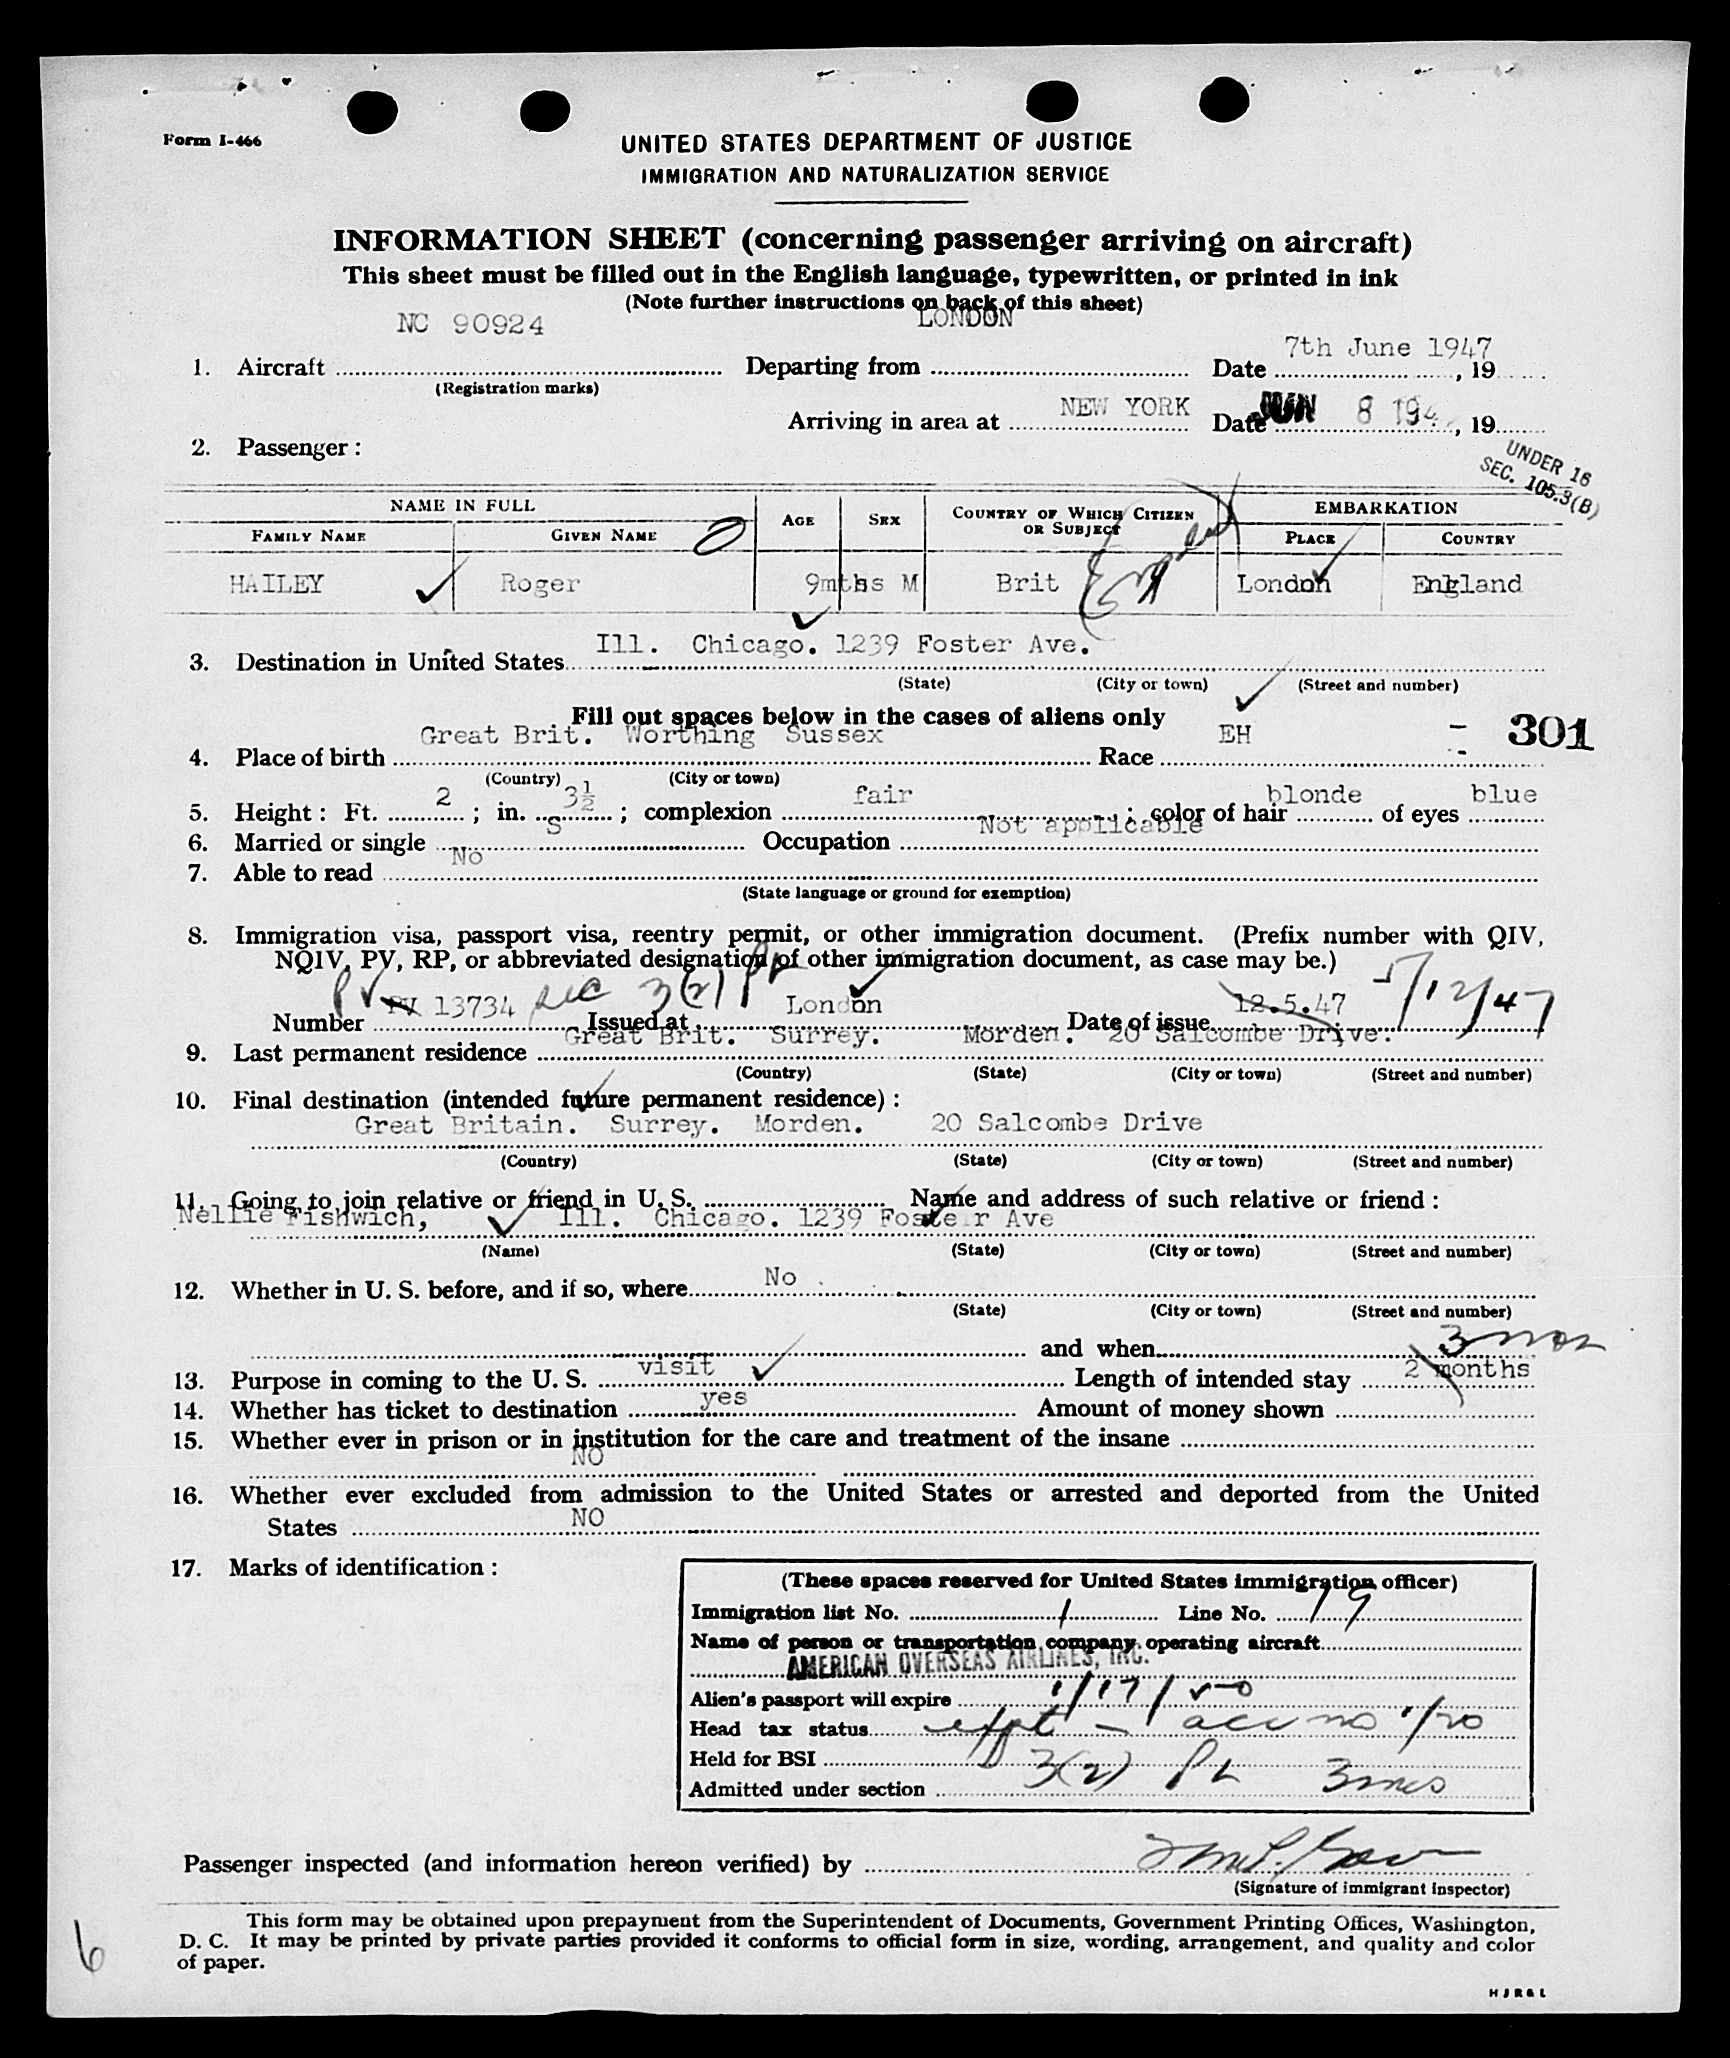 Form I-466
UNITED STATES DEPARTMENT OF JUSTICE
IMMIGRATION AND NATURALIZATION SERVICE
INFORMATION SHEET (concerning passenger arriving on aircraft)
This sheet must be filled out in the English language, typewritten, or printed in ink
(Note further instructions on back of this sheet)
NC 90924 LONDON 7th June 1947
1. Aircraft Departing from Date , 19
(Registration marks)
Arriving in area at NEW YORK Date JUN 8 194 , 19
2. Passenger :
UNDER 16
SEC. 105.3(B)
NAME IN FULL AGE SEX COUNTRY OF WHICH CITIZEN OR SUBJECT EMBARKATION
FAMILY NAME GIVEN NAME PLACE COUNTRY
HAILEY Roger 9mths M Brit England London England
3. Destination in United States Ill. Chicago. 1239 Foster Ave.
(State) (City or town) (Street and number)
Fill out spaces below in the cases of aliens only
301
4. Place of birth Great Brit. Worthing Sussex Race EH
(Country) (City or town)
5. Height : Ft. 2 ; in. 3½ ; complexion fair ; color of hair blonde of eyes blue
6. Married or single S Occupation Not applicable
7. Able to read No
(State language or ground for exemption)
8. Immigration visa, passport visa, reentry permit, or other immigration document. (Prefix number with QIV,
NQIV, PV, RP, or abbreviated designation of other immigration document, as case may be.)
Number PV PV 13734 sec 3(2) PV Issued at London Date of issue 12.5.47 5/12/47
9. Last permanent residence Great Brit. Surrey. Morden. 20 Salcombe Drive.
(Country) (State) (City or town) (Street and number)
10. Final destination (intended future permanent residence) :
Great Britain. Surrey. Morden. 20 Salcombe Drive
(Country) (State) (City or town) (Street and number)
11. Going to join relative or friend in U. S. Name and address of such relative or friend :
Nellie Fishwich, Ill. Chicago. 1239 Foster Ave
(Name) (State) (City or town) (Street and number)
12. Whether in U. S. before, and if so, where No
(State) (City or town) (Street and number)
and when 3 mos
13. Purpose in coming to the U. S. visit Length of intended stay 2 months
14. Whether has ticket to destination yes Amount of money shown
15. Whether ever in prison or in institution for the care and treatment of the insane
NO
16. Whether ever excluded from admission to the United States or arrested and deported from the United
States NO
17. Marks of identification :
(These spaces reserved for United States immigration officer)
Immigration list No. 1 Line No. 19
Name of person or transportation company operating aircraft
AMERICAN OVERSEAS AIRLINES, INC.
Alien's passport will expire 1/17/50
Head tax status
Held for BSI
Admitted under section 3(2) 3 mos
Passenger inspected (and information hereon verified) by
(Signature of immigrant inspector)
This form may be obtained upon prepayment from the Superintendent of Documents, Government Printing Offices, Washington,
D. C. It may be printed by private parties provided it conforms to official form in size, wording, arrangement, and quality and color
of paper.
6
H J R & L